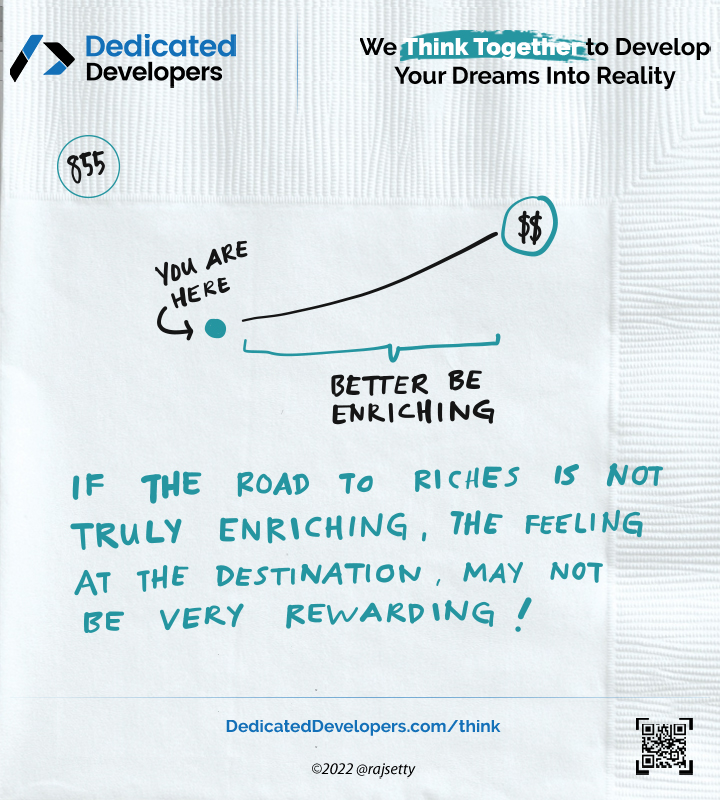 Dedicated
Developers
We Think Together to Develop
Your Dreams Into Reality
855
YOU ARE
HERE
$$
BETTER BE
ENRICHING
IF THE ROAD TO RICHES IS NOT
TRULY ENRICHING, THE FEELING
AT THE DESTINATION, MAY NOT
BE VERY REWARDING!
DedicatedDevelopers.com/think
©2022 @rajsetty